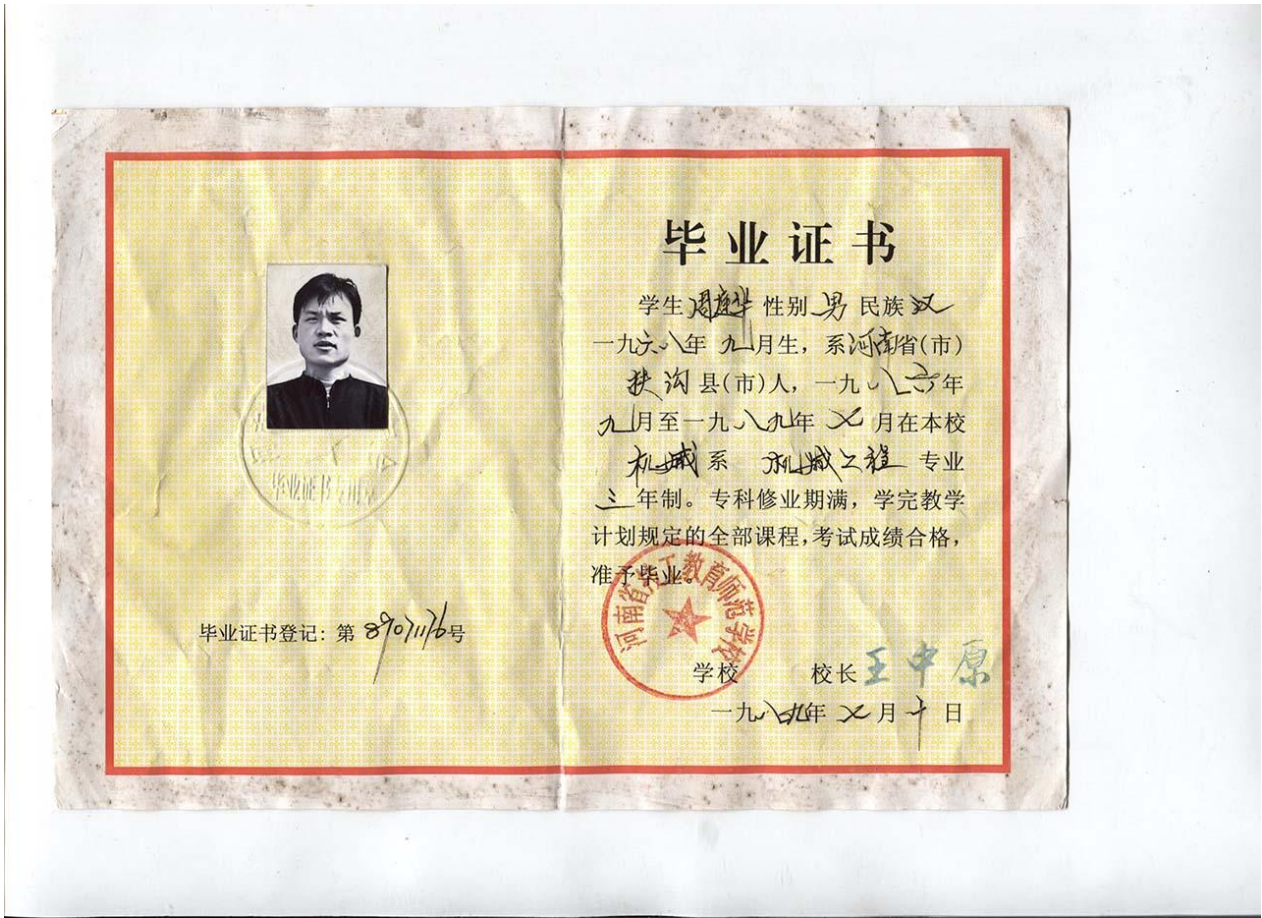 毕业证书
学生周建华性别男民族汉
一九六八年九月生，系河南省(市)
扶沟县(市)人，一九八六年
九月至一九八九年七月在本校
机械系 机械工程专业
三年制。专科修业期满，学完教学
计划规定的全部课程，考试成绩合格，
准予毕业。
河南省 工教育师范学校
学校 校长 王中原
一九八九年七月十日
毕业证书登记：第89071176号
毕业证书专用章